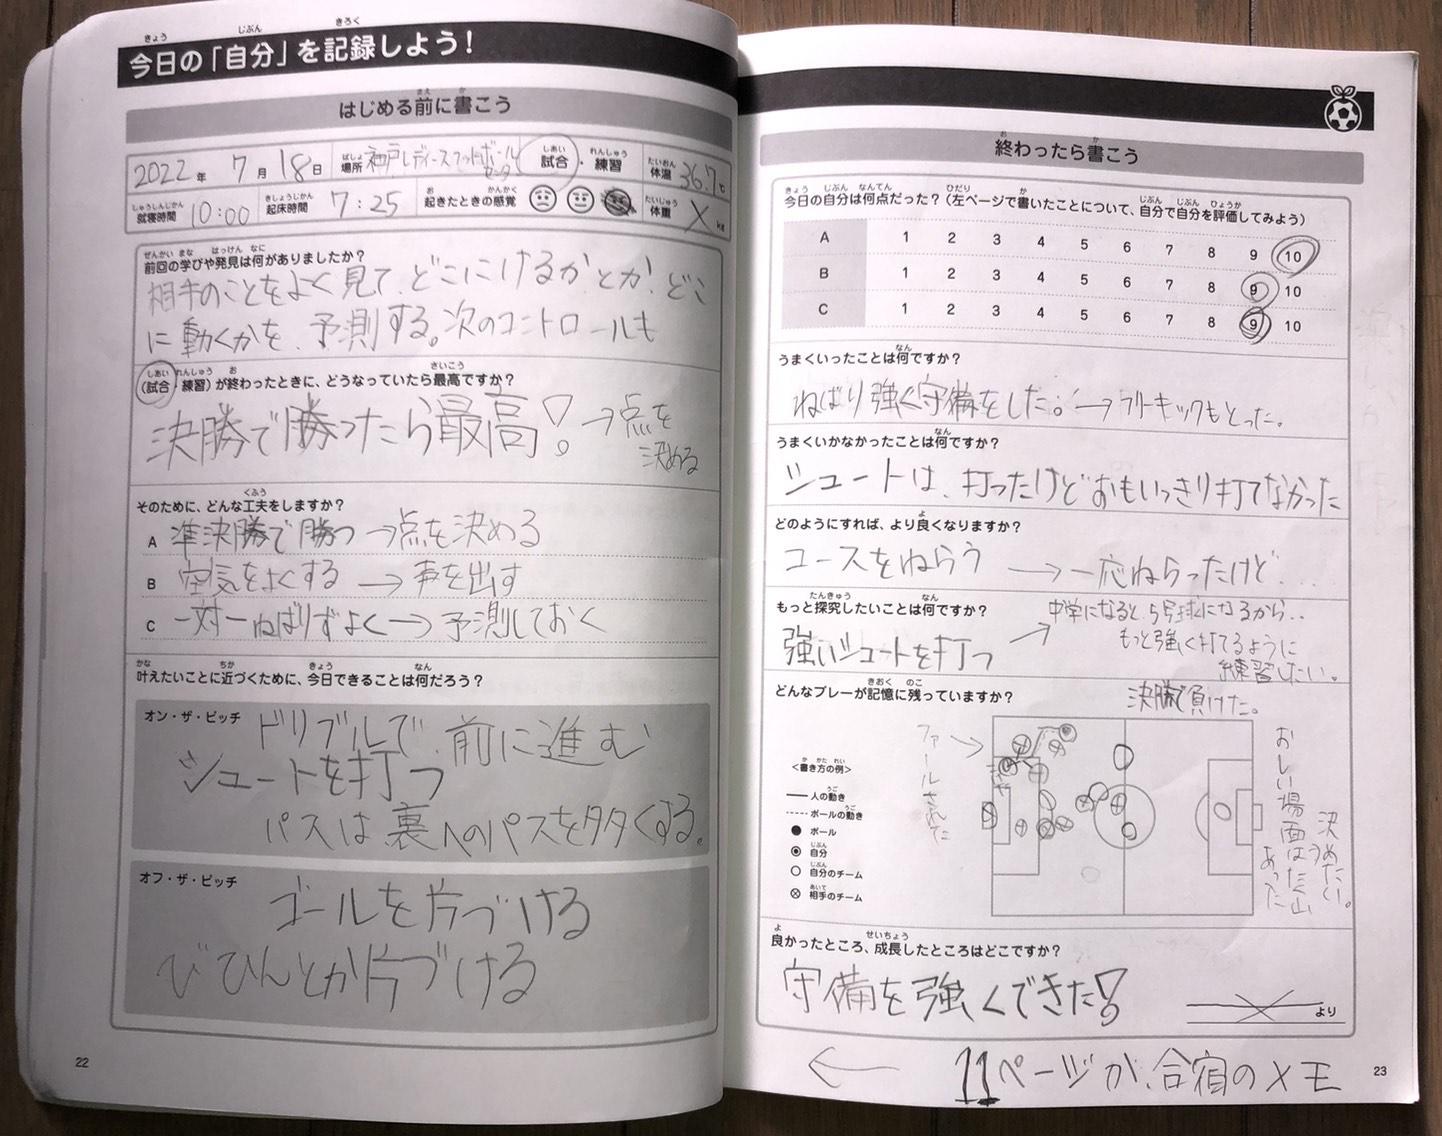 きょう じぶん きろく
今日の「自分」を記録しよう!
まえ か
はじめる前に書こう
2022年 7月 18日
ばしょ
場所 神戸レディースフットボールセンター
しあい れんしゅう
試合・練習
たいおん
体温 36.7℃
しゅうしんじかん
就寝時間 10:00
きしょうじかん
起床時間 7:25
お かんかく
起きたときの感覚
たいじゅう
体重 × kg
ぜんかい まな はっけん なに
前回の学びや発見は何がありましたか?
相手のことをよく見て、どこにけるかとか、どこ
に動くかを、予測する。次のコントロールも
しあい れんしゅう お さいこう
(試合・練習)が終わったときに、どうなっていたら最高ですか?
決勝で勝ったら最高!→点を
決める
くふう
そのために、どんな工夫をしますか?
A 準決勝で勝つ→点を決める
B 空気をよくする→声を出す
C 一対一ねばりずよく→予測しておく
かな ちか きょう なん
叶えたいことに近づくために、今日できることは何だろう?
オン・ザ・ピッチ
ドリブルで、前に進む
シュートを打つ
パスは裏へのパスを多くする。
オフ・ザ・ピッチ
ゴールを片づける
びひんとか片づける
22
お か
終わったら書こう
きょう じぶん なんてん ひだり か じぶん じぶん ひょうか
今日の自分は何点だった?(左ページで書いたことについて、自分で自分を評価してみよう)
A 1 2 3 4 5 6 7 8 9 10
B 1 2 3 4 5 6 7 8 9 10
C 1 2 3 4 5 6 7 8 9 10
なん
うまくいったことは何ですか?
ねばり強く守備をした。→フリーキックもとった。
なん
うまくいかなかったことは何ですか?
シュートは、打ったけどおもいっきり打てなかった
よ
どのようにすれば、より良くなりますか?
コースをねらう→一応ねらったけど....
たんきゅう なん
もっと探究したいことは何ですか?
強いシュートを打つ
中学になると、5号球になるから..
もっと強く打てるように
練習したい。
きおく のこ
どんなプレーが記憶に残っていますか?
決勝で負けた。
ファールされた
か かた れい
<書き方の例>
うご
人の動き
うご
ボールの動き
ボール
じぶん
自分
じぶん
自分のチーム
あいて
相手のチーム
おしい場面はたく山
あった
決めたい。
よ せいちょう
良かったところ、成長したところはどこですか?
守備を強くできた!
より
←11ページが、合宿のメモ
23